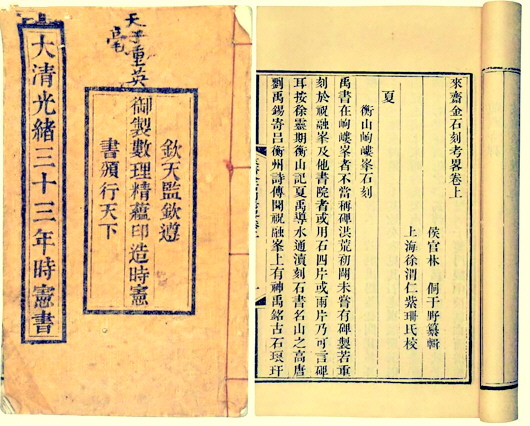 大清光緒三十三年時憲書
重英
欽天監欽遵
御製數理精蘊印造時憲
書頒行天下
來齋金石刻考畧卷上
侯官林 侗于野纂輯
上海徐渭仁紫珊氏校
夏
衡山岣嶁峯石刻
禹書在岣嶁峯者不當稱碑洪荒初闢未嘗有碑製若重
刻於祝融峯及他書院者或用石四片或兩片乃可言碑
耳按徐靈期衡山記夏禹導水通瀆刻石書名山之高唐
劉禹錫寄呂衡州詩傳聞祝融峯上有神禹銘古石琅玕